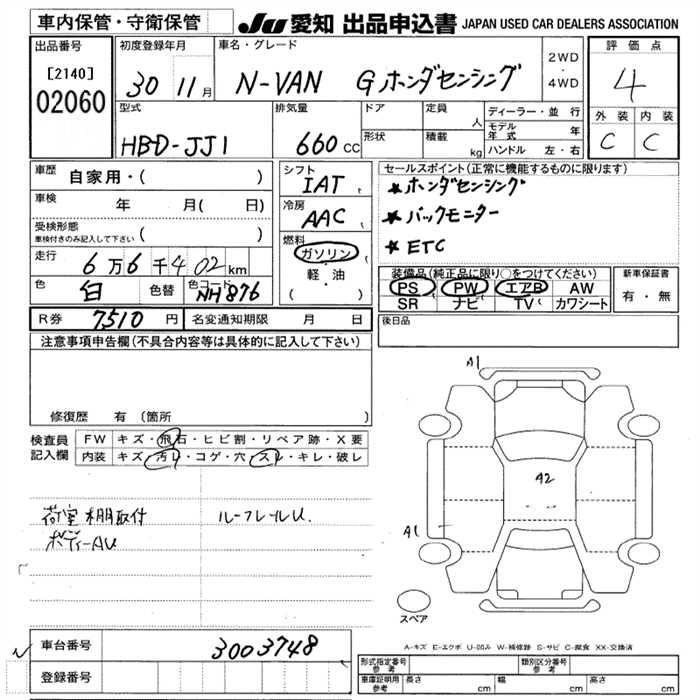 車内保管・守衛保管
JU 愛知 出品申込書 JAPAN USED CAR DEALERS ASSOCIATION
出品番号
[2140]
02060
初度登録年月
30 11月
車名・グレード
N-VAN Gホンダセンシング
2WD
・
4WD
評価点
4
外装 内装
C C
型式
HBD-JJ1
排気量
660 CC
ドア
形状
定員 人
積載 kg
ディーラー・並行
モデル年式 年
ハンドル 左・右
車歴 自家用・( )
車検 年 月( 日)
受検形態
車検付きのみ記入して下さい ( )
走行 6万6千402km
色 白 色替 色コード NH876
シフト
IAT
冷房
AAC
燃料
ガソリン
・
軽・油
( )
セールスポイント(正常に機能するものに限ります)
★ホンダセンシング
★バックモニター
★ETC
装備品(純正品に限り○をつけてください)
PS PW エアB AW
SR ナビ TV カワシート
新車保証書
有・無
R券 7,510 円 名変通知期限 月 日
後日品
注意事項申告欄(不具合内容等は具体的に記入して下さい)
修復歴 有 (箇所 )
検査員記入欄
FW キズ・飛石・ヒビ割・リペア跡・X要
内装 キズ・汚レ・コゲ・穴・スレ・キレ・破レ
荷室棚取付 ルーフレールU.
ボディーAU
A1
A2
A1
スペア
A-キズ E-エクボ U-凹み W-補修跡 S-サビ C-腐食 XX-交換済
車台番号 3003748
登録番号
形式指定番号 参考 類別区分番号 参考
車庫証明用 参考 長さ cm 幅 cm 高さ cm